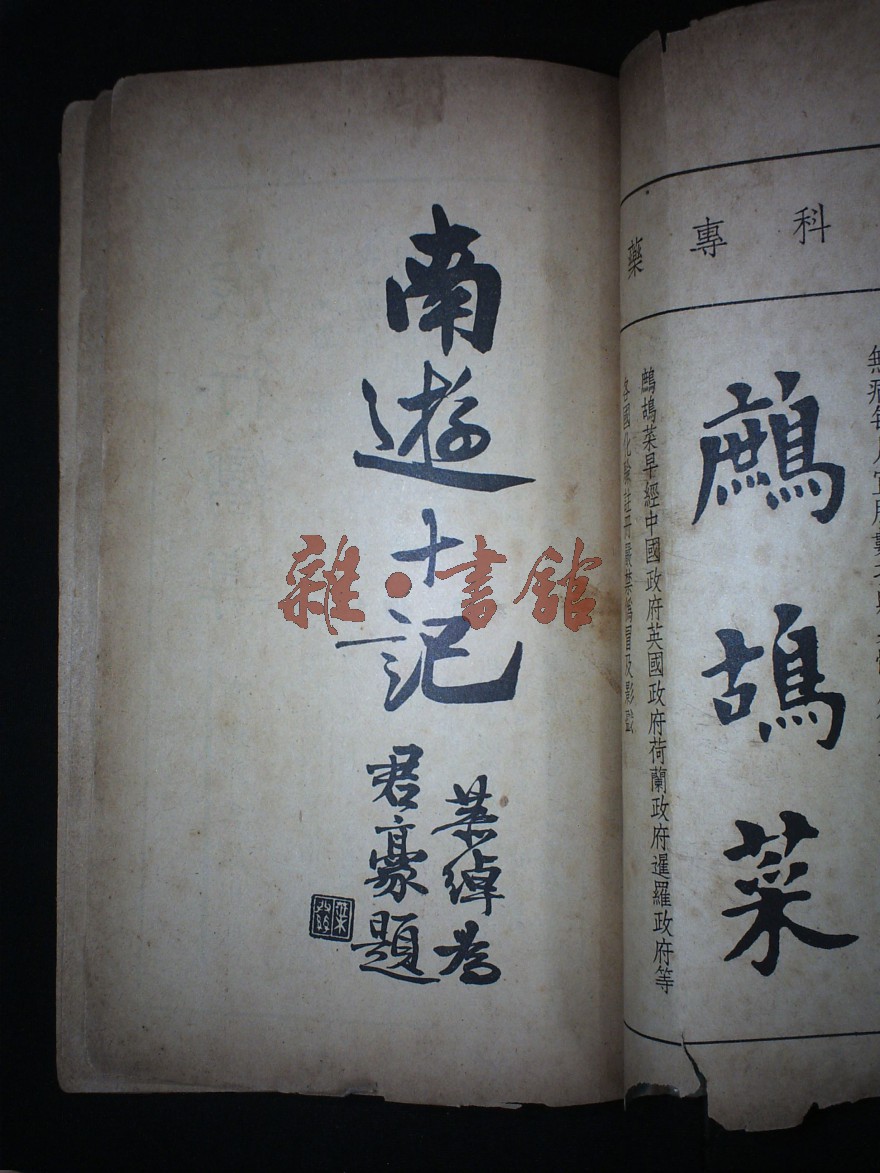 南遊十記
葉綽為
君豪題
雜·書館
科專藥
鷓鴣菜
鷓鴣菜早經中國政府英國政府荷蘭政府暹羅政府等
各國化驗註冊嚴禁偽冒及影戤